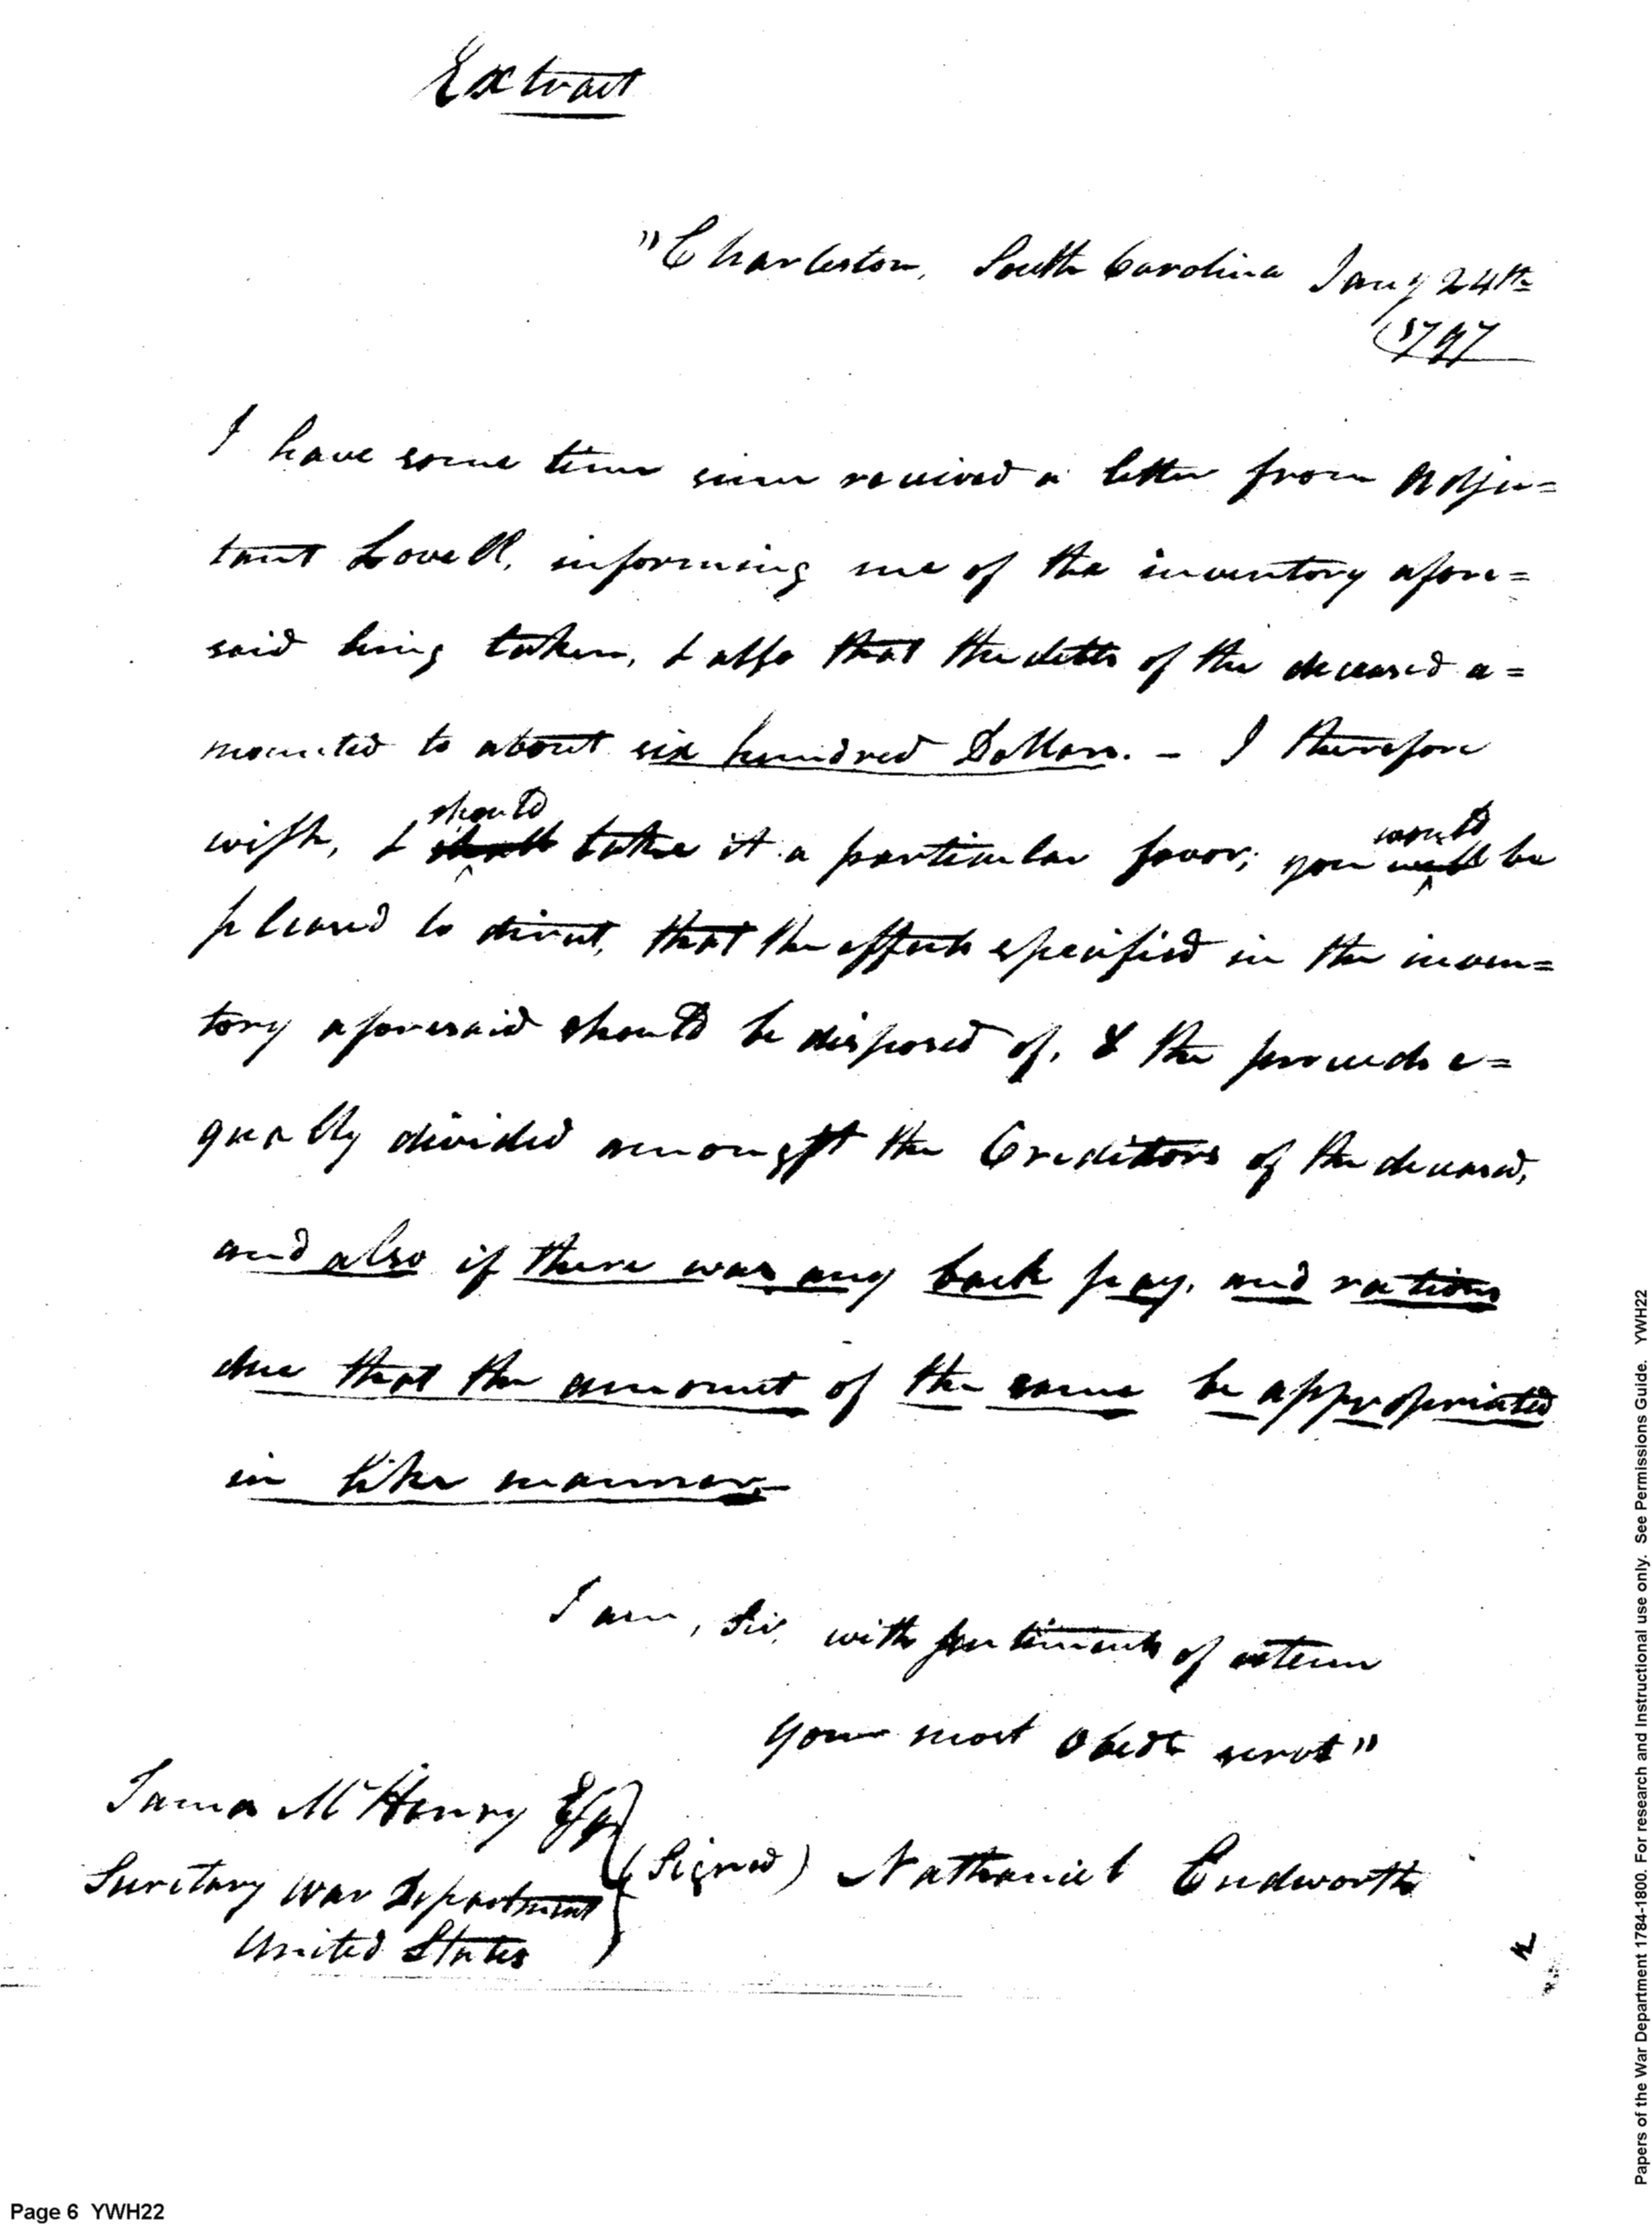 Extract
"Charleston, South Carolina Jany 24th
1797
I have some time since received a letter from Adju=
tant Lovell, informing me of the inventory afore=
said being taken, & also that the debts of the deceased a=
mounted to about six hundred Dollars. - I therefore
wish, & should shall take it a particular favor; you would will be
pleased to direct, that the effects specified in the inven=
tory aforesaid should be disposed of, & the proceeds e=
qually divided amongst the Creditors of the deceased,
and also if there was any back pay, and rations
due that the amount of the same be appropriated
in like manner.
I am, Sir, with sentiments of esteem
your most Obedt servt"
James McHenry Esqr
Secretary War Department
United States
(Signed) Nathaniel Cudworth
Page 6 YWH22
Papers of the War Department 1784-1800. For research and Instructional use only. See Permissions Guide. YWH22